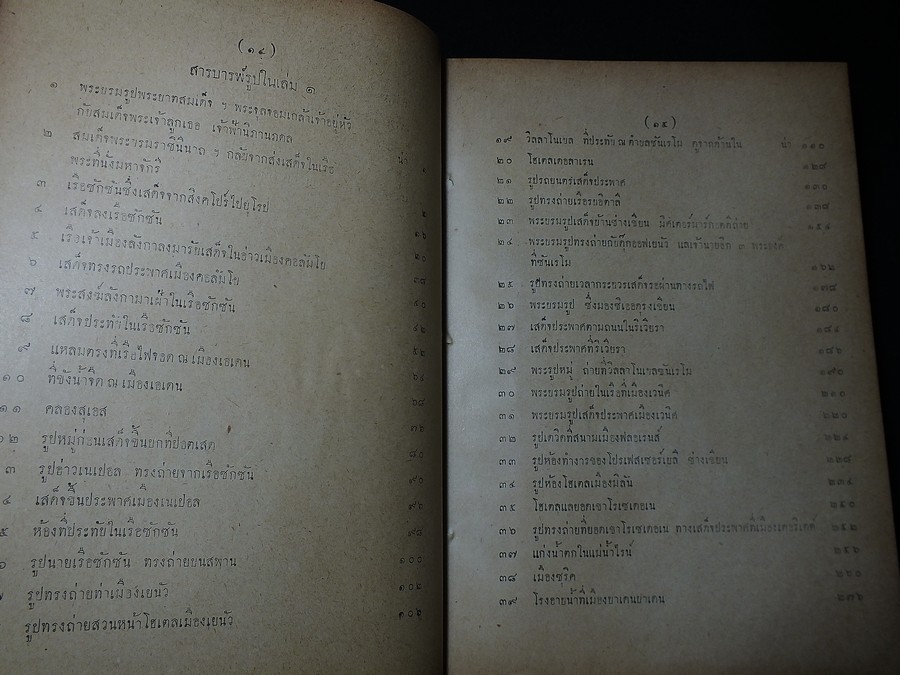 (๑๔)
สารบารพ์รูปในเล่ม ๑
๑ พระบรมรูปพระบาทสมเด็จ ฯ พระจุลจอมเกล้าเจ้าอยู่หัว
กับสมเด็จพระเจ้าลูกเธอ เจ้าฟ้านิภานภดล น่า
๒ สมเด็จพระบรมราชินีนาถ ฯ กลับจากส่งเสด็จในเรือ
พระที่นั่งมหาจักรี
๓ เรือซักซันซึ่งเสด็จจากสิงคโปร์ไปยุโรป ๕
๔ เสด็จลงเรือซักซัน ๑๖
๕ เรือเจ้าเมืองลังกาลงมารับเสด็จในอ่าวเมืองคอลัมโบ
๖ เสด็จทรงรถประพาศเมืองคอลัมโบ ๓๘
๗ พระสงฆ์ลังกามาเฝ้าในเรือซักซัน ๔๐
๘ เสด็จประทับในเรือซักซัน ๔๖
๙ แหลมตรงที่เรือไฟจอด ณ เมืองเอเดน ๕๒
๑๐ ที่ขังน้ำจืด ณ เมืองเอเดน ๖๔
๑๑ คลองสุเอส ๖๘
๑๒ รูปหมู่ก่อนเสด็จขึ้นบกที่ปอตเสด ๗๖
๓ รูปอ่าวเนเปอล ทรงถ่ายจากเรือซักซัน ๘๐
๔ เสด็จขึ้นประพาศเมืองเนเปอล ๙๖
๕ ห้องที่ประทับในเรือซักซัน ๙๘
๖ รูปนายเรือซักซัน ทรงถ่ายบนสพาน ๑๐๐
๗ รูปทรงถ่ายท่าเมืองเยนัว ๑๐๒
รูปทรงถ่ายสวนหน้าโฮเตลเมืองเยนัว ๑๐๖
(๑๕)
๑๙ วิลลาโนเบล ที่ประทับ ณ ตำบลซันเรโม ดูจากด้านใน น่า ๑๑๐
๒๐ โฮเตลเดอลาเรน ๑๒๘
๒๑ รูปรถยนตร์เสด็จประพาศ ๑๓๐
๒๒ รูปทรงถ่ายเรือรบอิตาลี ๑๓๘
๒๓ พระบรมรูปเสด็จบ้านช่างเขียน มิศเตอร์ ๑๕๔
๒๔ พระบรมรูปทรงถ่ายกับดุ๊กออฟเยนัว แลเจ้านายอีก ๓ พระองค์
ที่ซันเรโม ๑๖๒
๒๕ รูปทรงถ่ายเวลากระบวรเสด็จรอผ่านทางรถไฟ ๑๗๘
๒๖ พระบรมรูป ซึ่งมองซิเออดุรงเขียน ๑๘๐
๒๗ เสด็จประพาศตามถนนในริเวียรา ๑๘๔
๒๘ เสด็จประพาศที่ริเวียรา ๑๘๖
๒๙ พระรูปหมู่ ถ่ายที่วิลลาโนเบลซันเรโม ๑๙๐
๓๐ พระบรมรูปถ่ายในเรือที่เมืองเวนิศ ๒๑๐
๓๑ พระบรมรูปเสด็จประพาศเมืองเวนิศ ๒๒๐
๓๒ รูปเดวิดที่สนามเมืองฟลอเรนส์ ๒๒๔
๓๓ รูปห้องทำงารของโปรเฟสเซอร์เยลี ช่างเขียน ๒๒๘
๓๔ รูปห้องโฮเตลเมืองมิลัน ๒๓๔
๓๕ โฮเตลแลยอดเขาโรเชเดอเน ๒๕๐
๓๖ รูปทรงถ่ายที่ยอดเขาโรเชเดอเน ทางเสด็จประพาศที่เมืองเตอริเตต์ ๒๕๒
๓๗ แก่งน้ำตกในแม่น้ำไรน์ ๒๕๖
๓๘ เมืองซุริค ๒๖๐
๓๙ โรงอาบน้ำที่เมืองบาเดนบาเดน ๒๗๖